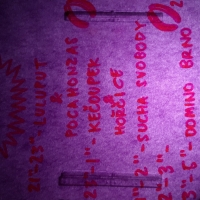 LILIPUT
&
POCAHONZAS
KEČOUPEK
&
HOŘČICE
1"-2"-SUCHA SVOBODY
2"-3"-
DOMINO BRNO